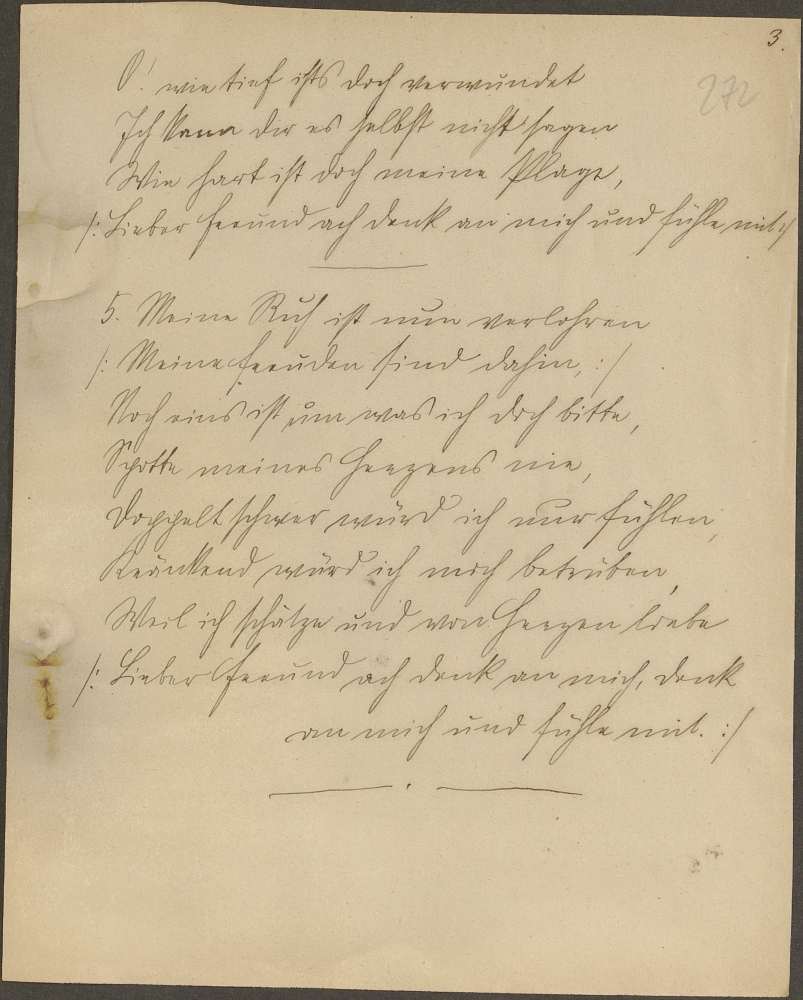 3.
272
O! wie tief ists doch verwundet
Ich kann dir es selbst nicht sagen
Wie hart ist doch meine Plage,
/: Lieber Freund ach denk an mich und fühle mit :/
5. Meine Ruh ist nun verlohren
/: Meine Freuden sind dahin, :/
Noch eins ist um was ich doch bitte,
Spotte meines Herzens nie,
Doppelt schwer würd ich nur fühlen,
Kränkend würd ich mich betrüben,
Weil ich schätze und von Herzen liebe
/: Lieber Freund ach denk an mich, denk
an mich und fühle mit. :/